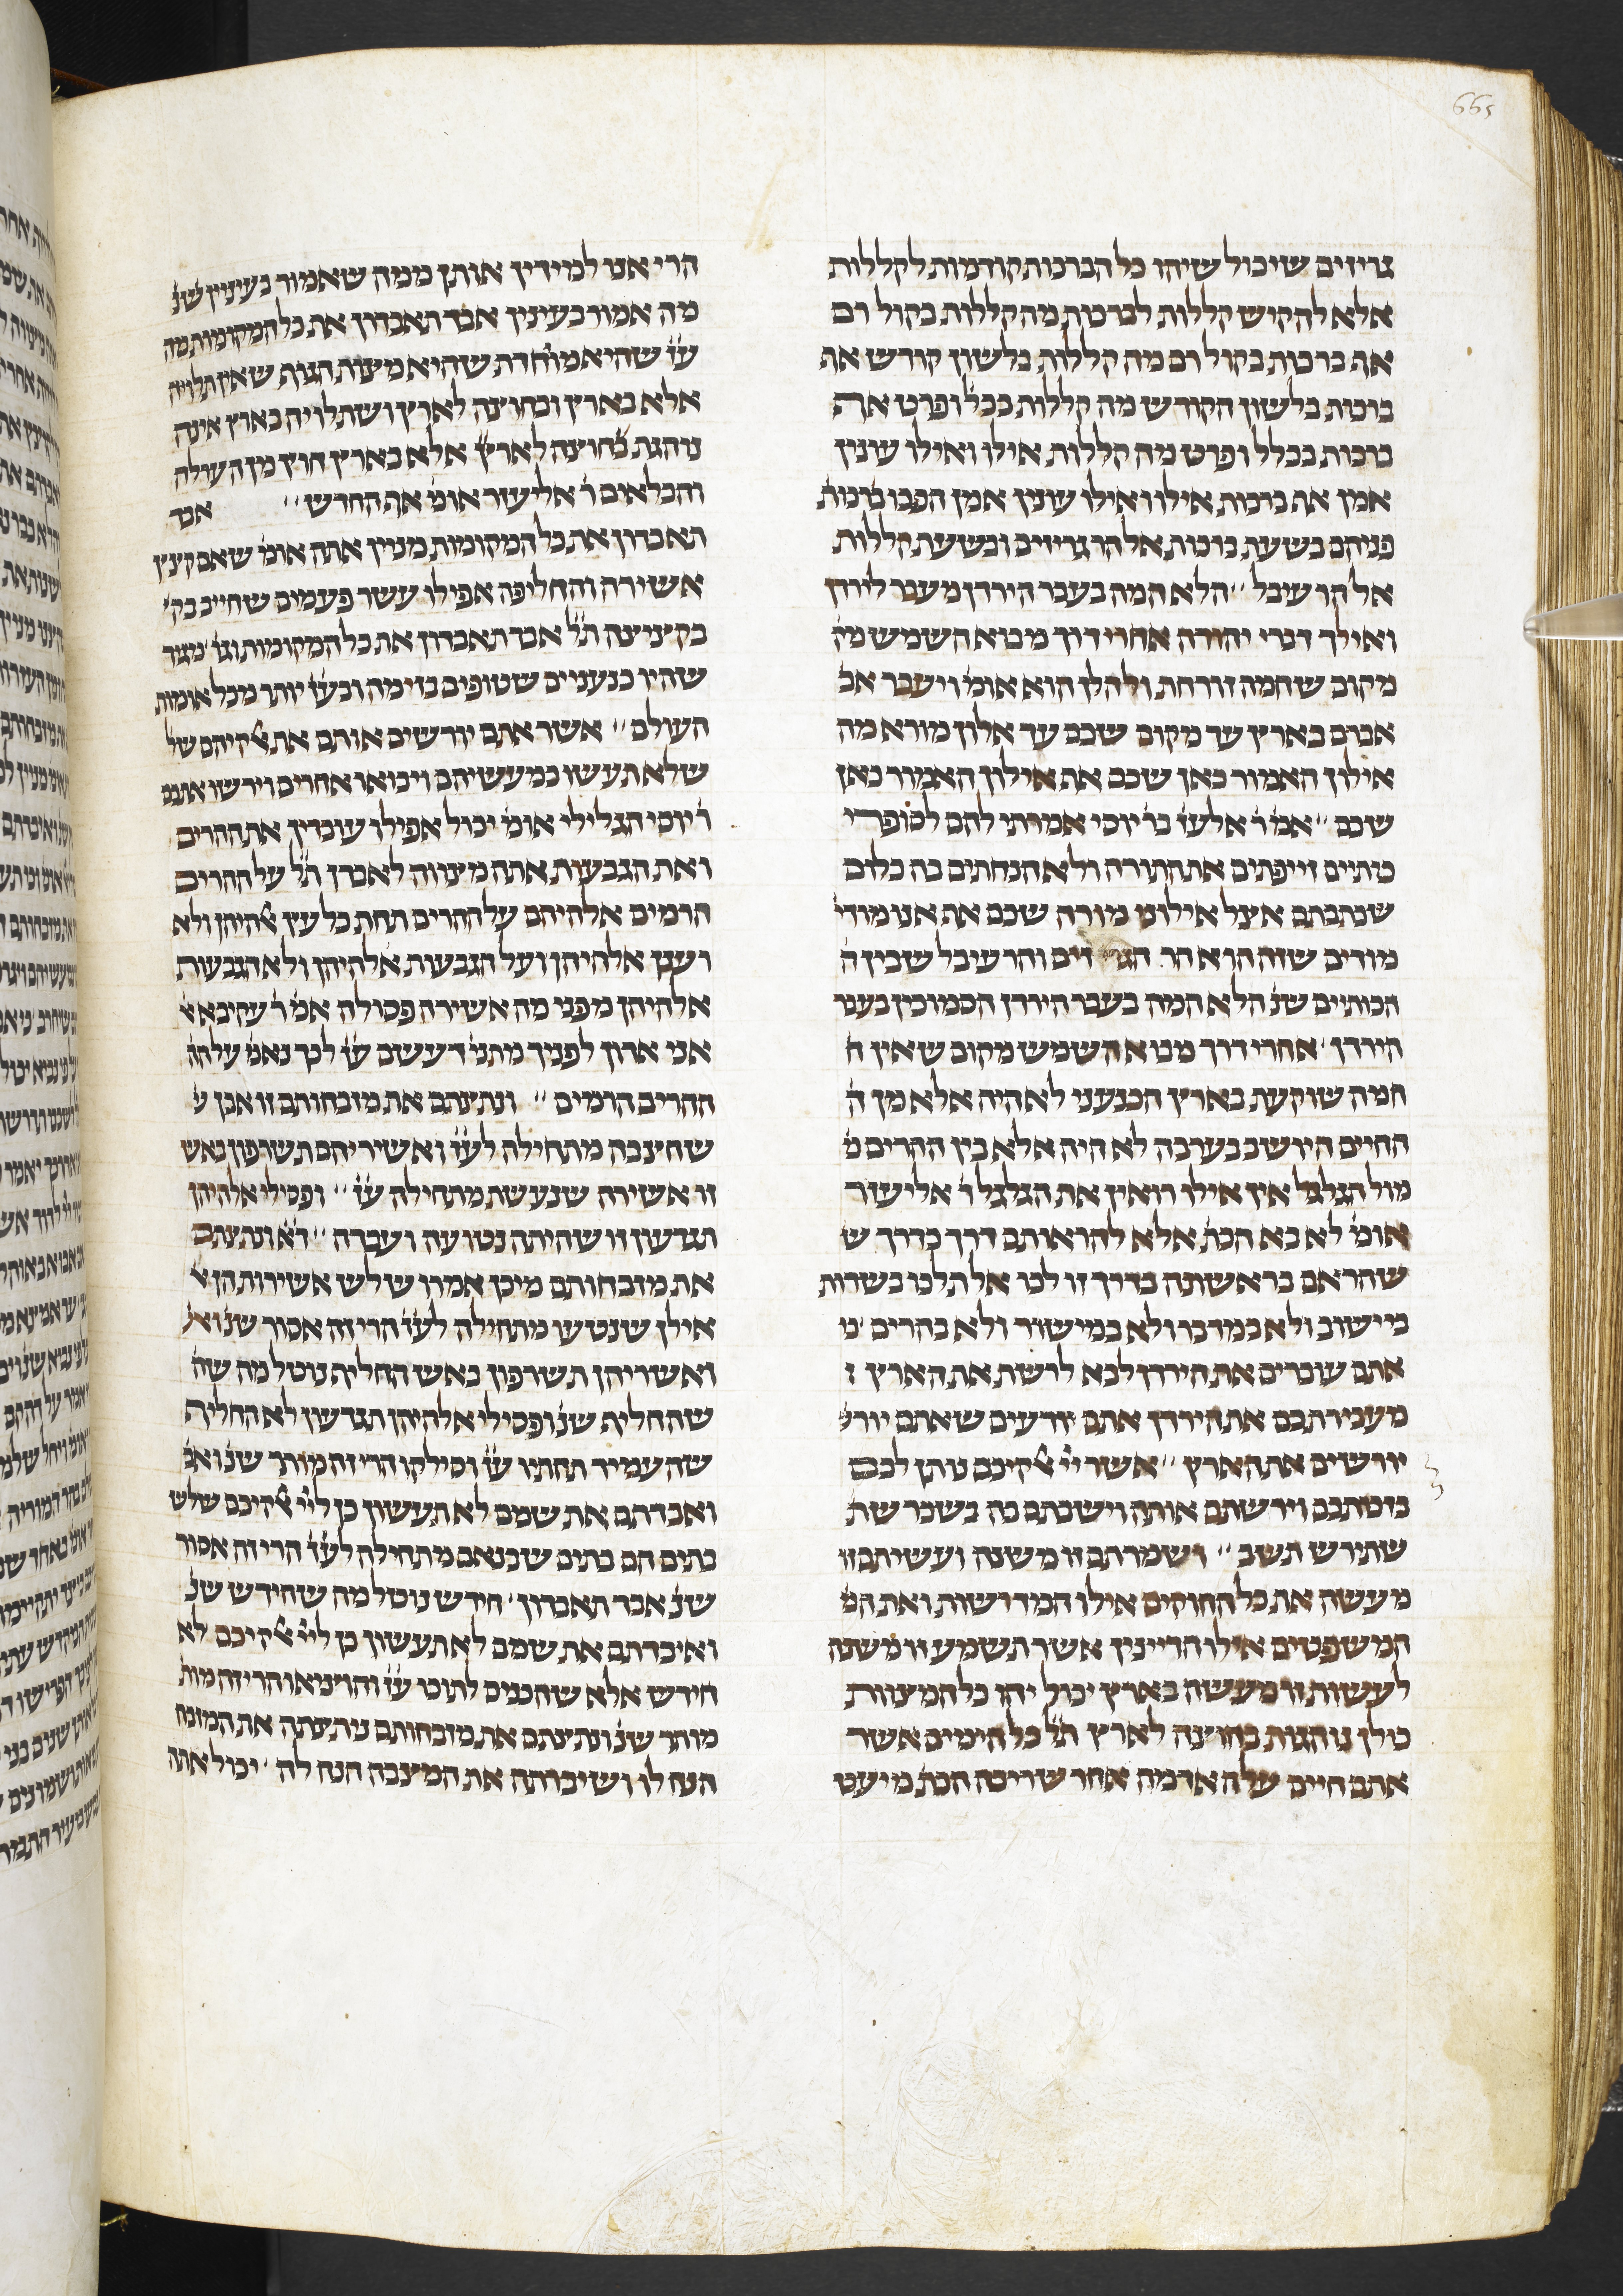 665
גריזים שיכול שיהו כל הברכות קודמות לקללות
אלא להקיש קללות לברכות מה קללות בקול רם
אף ברכות בקול רם מה קללות בלשון קודש אף
ברכות בלשון הקודש מה קללות בכלל ופרט אף
ברכות בכלל ופרט מה קללות אילו ואילו עונין
אמן אף ברכות אילו ואילו עונין אמן הפכו ברכות
פניהם בשעת ברכות אל הר גריזים ובשעת קללות
אל הר עיבל ׳׳ הלא המה בעבר הירדן מעבר לירדן
ואילך דברי יהודה אחרי דרך מבוא השמש מק׳
מקום שחמה זורחת ולהלן הוא אומ׳ ויעבר אב
אברם בארץ עד מקום שכם עד אלון מורא מה
אילון האמור כאן שכם אף אילון האמור כאן
שכם ׳׳ אמ׳ ר׳ אלעז׳ בר׳ יוסי אמרתי להם לסופרי
כותיים זייפתים את התורה ולא הנחתים בה כלום
שכתבתם אצל אילוני מורה שכם אף אנו מודי
מודים שזה הוא הר הגריזים והר עיבל שבין ה
הכותיים שנ׳ הלא המה בעבר הירדן הסמוכין בעבר
הירדן ׳ אחרי דרך מבוא השמש מקום שאין ח
חמה שוקעת בארץ הכנעני לא היה אלא מן ה
החיים היושב בערבה לא היה אלא בין ההרים מ
מול הגלגל אין אילו רואין את הגלגל ר׳ אליעזר
אומ׳ לא בא הכת׳ אלא להראותם דרך כדרך ש
שהראם בראשונה בדרך זו לכו אל תלכו בשדות
מיישוב ולא במדבר ולא במישור ולא בהרים ׳ כי
אתם עוברים את הירדן לבא לרשת את הארץ ז
מעבירתכם את הירדן אתם יודעים שאתם יור
יורשים את הארץ ׳׳ אשר יי׳ אלקיכם נותן לכם
בזכותכם וירשתם אותה וישבתם בה בשכר שת
שתירש תשב ׳׳ ושמרתם זו משנה ועשיתם זו
מעשה את כל החוקים אילו המדרשות ואת המ
המשפטים אילו הדיינין אשר תשמע זו משנה
לעשות זו מעשה בארץ יכול יהו כל המצוות
כולן נוהגות בחוצה לארץ ת״ל כל הימים אשר
אתם חיים על האדמה אחר שריבה הכת׳ מיעט
הרי אנו למידין אותן ממה שאמור בעיניין שנ׳
מה אמור בעיניין אבד תאבדון את כל המקומות מה
ע״ז שהיא מיוחדת שהיא מצות הגוף שאין תלויה
אלא בארץ ובחוצה לארץ ושתלויה בארץ אינה
נוהגת בחוצה לארץ אלא בארץ חוץ מן הערלה
והכלאים ר׳ אליעזר אומ׳ אף החדש ׳׳ אבד
תאבדון את כל המקומות מניין אתה אומ׳ שאם קיצץ
אשירה והחליפה אפילו עשר פעמים שחייב בק׳
בקיצוצה ת״ל אבד תאבדון את כל המקומות וגו׳ מגיד
שהיו כנעניים שטופים בזימה ובע״ז יותר מכל אומות
העולם ׳׳ אשר אתם יורשים אותם את אלקיהם של
שלא תעשו כמעשיהם ויבואו אחרים וירשו אתכם
ר׳ יוסי הגלילי אומ׳ יכול אפילו עובדין את ההרים
ואת הגבעות אתה מצווה לאבדן ת״ל על ההרים
הרמים אלהיהם על ההרים תחת כל עץ אלהיהן ולא
ועצן אלהיהן ועל הגבעות אלהיהן ולא הגבעות
אלהיהן מפני מה אשירה פסולה אמ׳ ר׳ עקיבא א
אני ארון לפניך מתני׳ דעשב ע״ז לכך נאמ׳ על הה
ההרים הרמים ׳׳ ונתצתם את מזבחותם זו אבן ש
שחיצבה מתחילה לע״ז ואשיריהם תשרפון באש
זו אשירה שנעשת מתחילה ע״ז ׳׳ ופסילי אלהיהן
תגדעון זו שהיתה נטועה ועבדה ׳׳ ד״א ונתצתם
את מזבחותם מיכן אמרו שלש אשירות הן א
אילן שנטעו מתחילה לע״ז הרי זה אסור שנ׳ וא
ואשריהן תשרפון באש החליף נוטל מה שה
שהחליף שנ׳ ופסילי אלהיהן תגדעון לא החליף
שהעמיד תחתיו ע״ז וסילקו הרי זה מותר שנ׳ ואב
ואבדתם את שמם לא תעשון כן לי״י אלקיכם שלש
בתים הם בתים שבנאם מתחילה לע״ז הרי זה אסור
שנ׳ אבד תאבדון ׳ חידש נוטל מה שחידש שנ׳
ואיבדתם את שמם לא תעשון כן לי״י אלקיכם לא
חידש אלא שהכניס לתוכו ע״ז והוציאו הרי זה מות׳
מותר שנ׳ ונתצתם את מזבחותם ניתצתה את המזבח
הנח לו ושיברתה את המצבה הנח לה ׳ יכול אתה